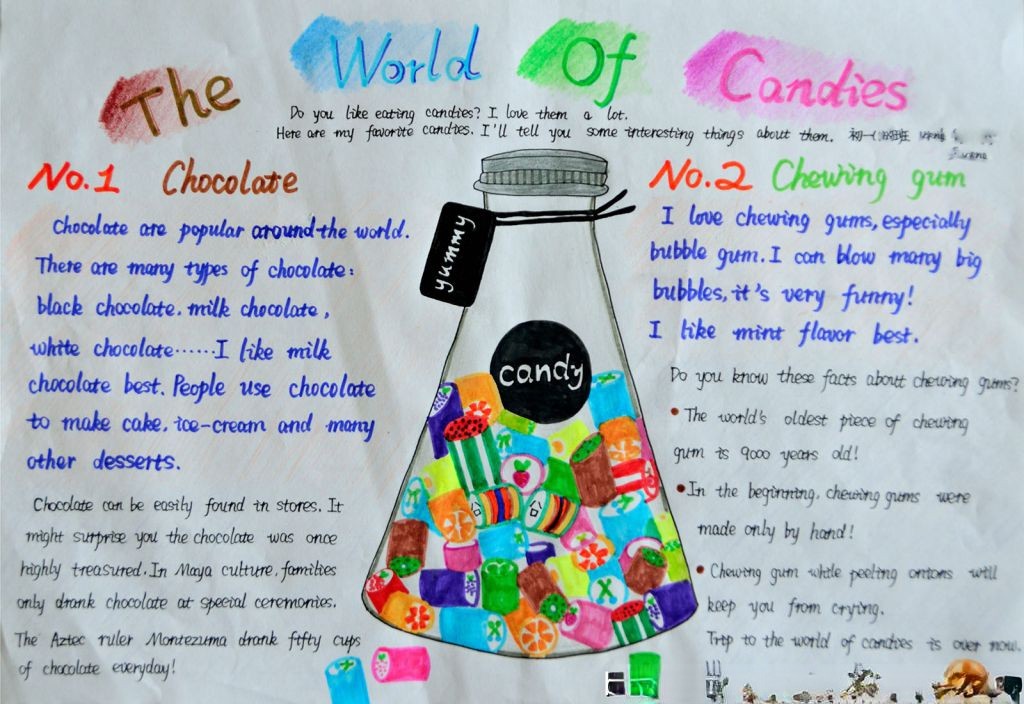 The World Of Candies
Do you like eating candies? I love them a lot.
Here are my favorite candies. I'll tell you some interesting things about them. 初一
No.1 Chocolate
Chocolate are popular around the world.
There are many types of chocolate:
black chocolate. milk chocolate,
white chocolate······I like milk
chocolate best. People use chocolate
to make cake, ice-cream and many
other desserts.
Chocolate can be easily found in stores. It
might surprise you the chocolate was once
highly treasured. In Maya culture, families
only drank chocolate at special ceremonies.
The Aztec ruler Montezuma drank fifty cups
of chocolate everyday!
yummy
candy
No.2 Chewing gum
I love chewing gums, especially
bubble gum. I can blow many big
bubbles, it's very funny!
I like mint flavor best.
Do you know these facts about chewing gums?
• The world's oldest piece of chewing
gum is 9000 years old!
• In the beginning, chewing gums were
made only by hand!
• Chewing gum while peeling onions will
keep you from crying.
Trip to the world of candies is over now.